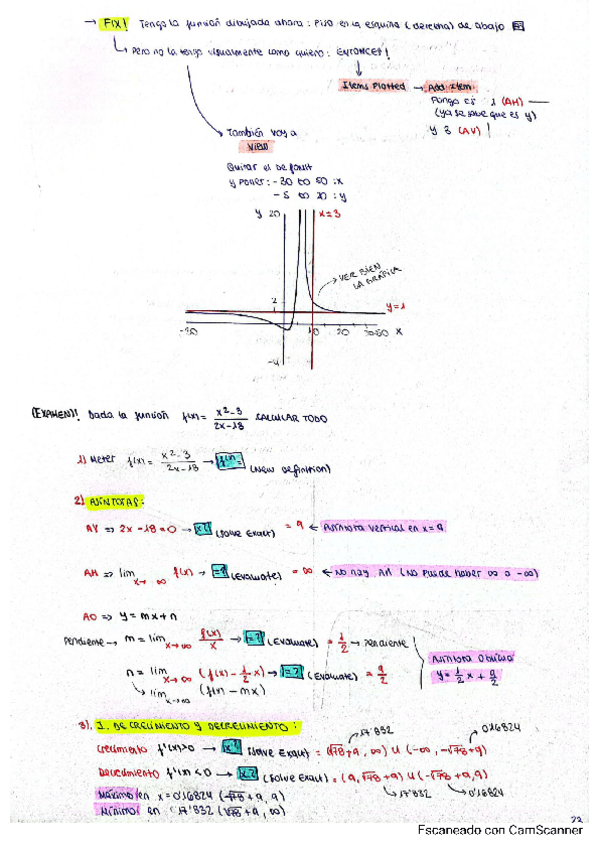 → FIX! Tengo la función dibujada ahora: Piso en la esquina (derecha) de abajo
↳ Pero no la tengo visualmente como quiero: ENTONCES!
Items Plotted → Add Item
Pongo es 1 (AH)
(ya se sabe que es y)
y 3 (AV)!
También voy a
VIEW
Quitar el Default
y poner: -30 to 50 :x
-5 to 20 :y
y 20
x=3
VER BIEN
LA GRÁFICA
2
y=1
-30
10 20 30 50 x
-4
(EXAMEN)! Dada la función f(x) = x²-3 / 2x-18 CALCULAR TODO
1) Meter f(x) = x²-3 / 2x-18 → f(x)= (New Definition)
2) ASÍNTOTAS:
AV ⇒ 2x-18=0 → x? (Solve Exact) = 9 ← Asíntota vertical en x=9
AH ⇒ lim x→∞ f(x) → =? (Evaluate) = ∞ ← No hay AH (No puede haber ∞ o -∞)
AO ⇒ y = mx+n
Pendiente → m = lim x→∞ f(x)/x → =? (Evaluate) = 1/2 → Pendiente
n = lim x→∞ (f(x) - 1/2 x) → =? (Evaluate) = 9/2
↳ lim x→∞ (f(x) - mx)
Asíntota Oblicua
y = 1/2 x + 9/2
3) I. DE CRECIMIENTO Y DECRECIMIENTO:
17'832
0'16824
Crecimiento f'(x)>0 → x? (Solve Exact) = (√78+9, ∞) U (-∞, -√78+9)
Decrecimiento f'(x)<0 → x? (Solve Exact) = (9, √78+9) U (-√78+9, 9)
17'832
0'16824
Máximo en x=0'16824 (-√78+9, 9)
Mínimo en 17'832 (√78+9, ∞)
23
Escaneado con CamScanner